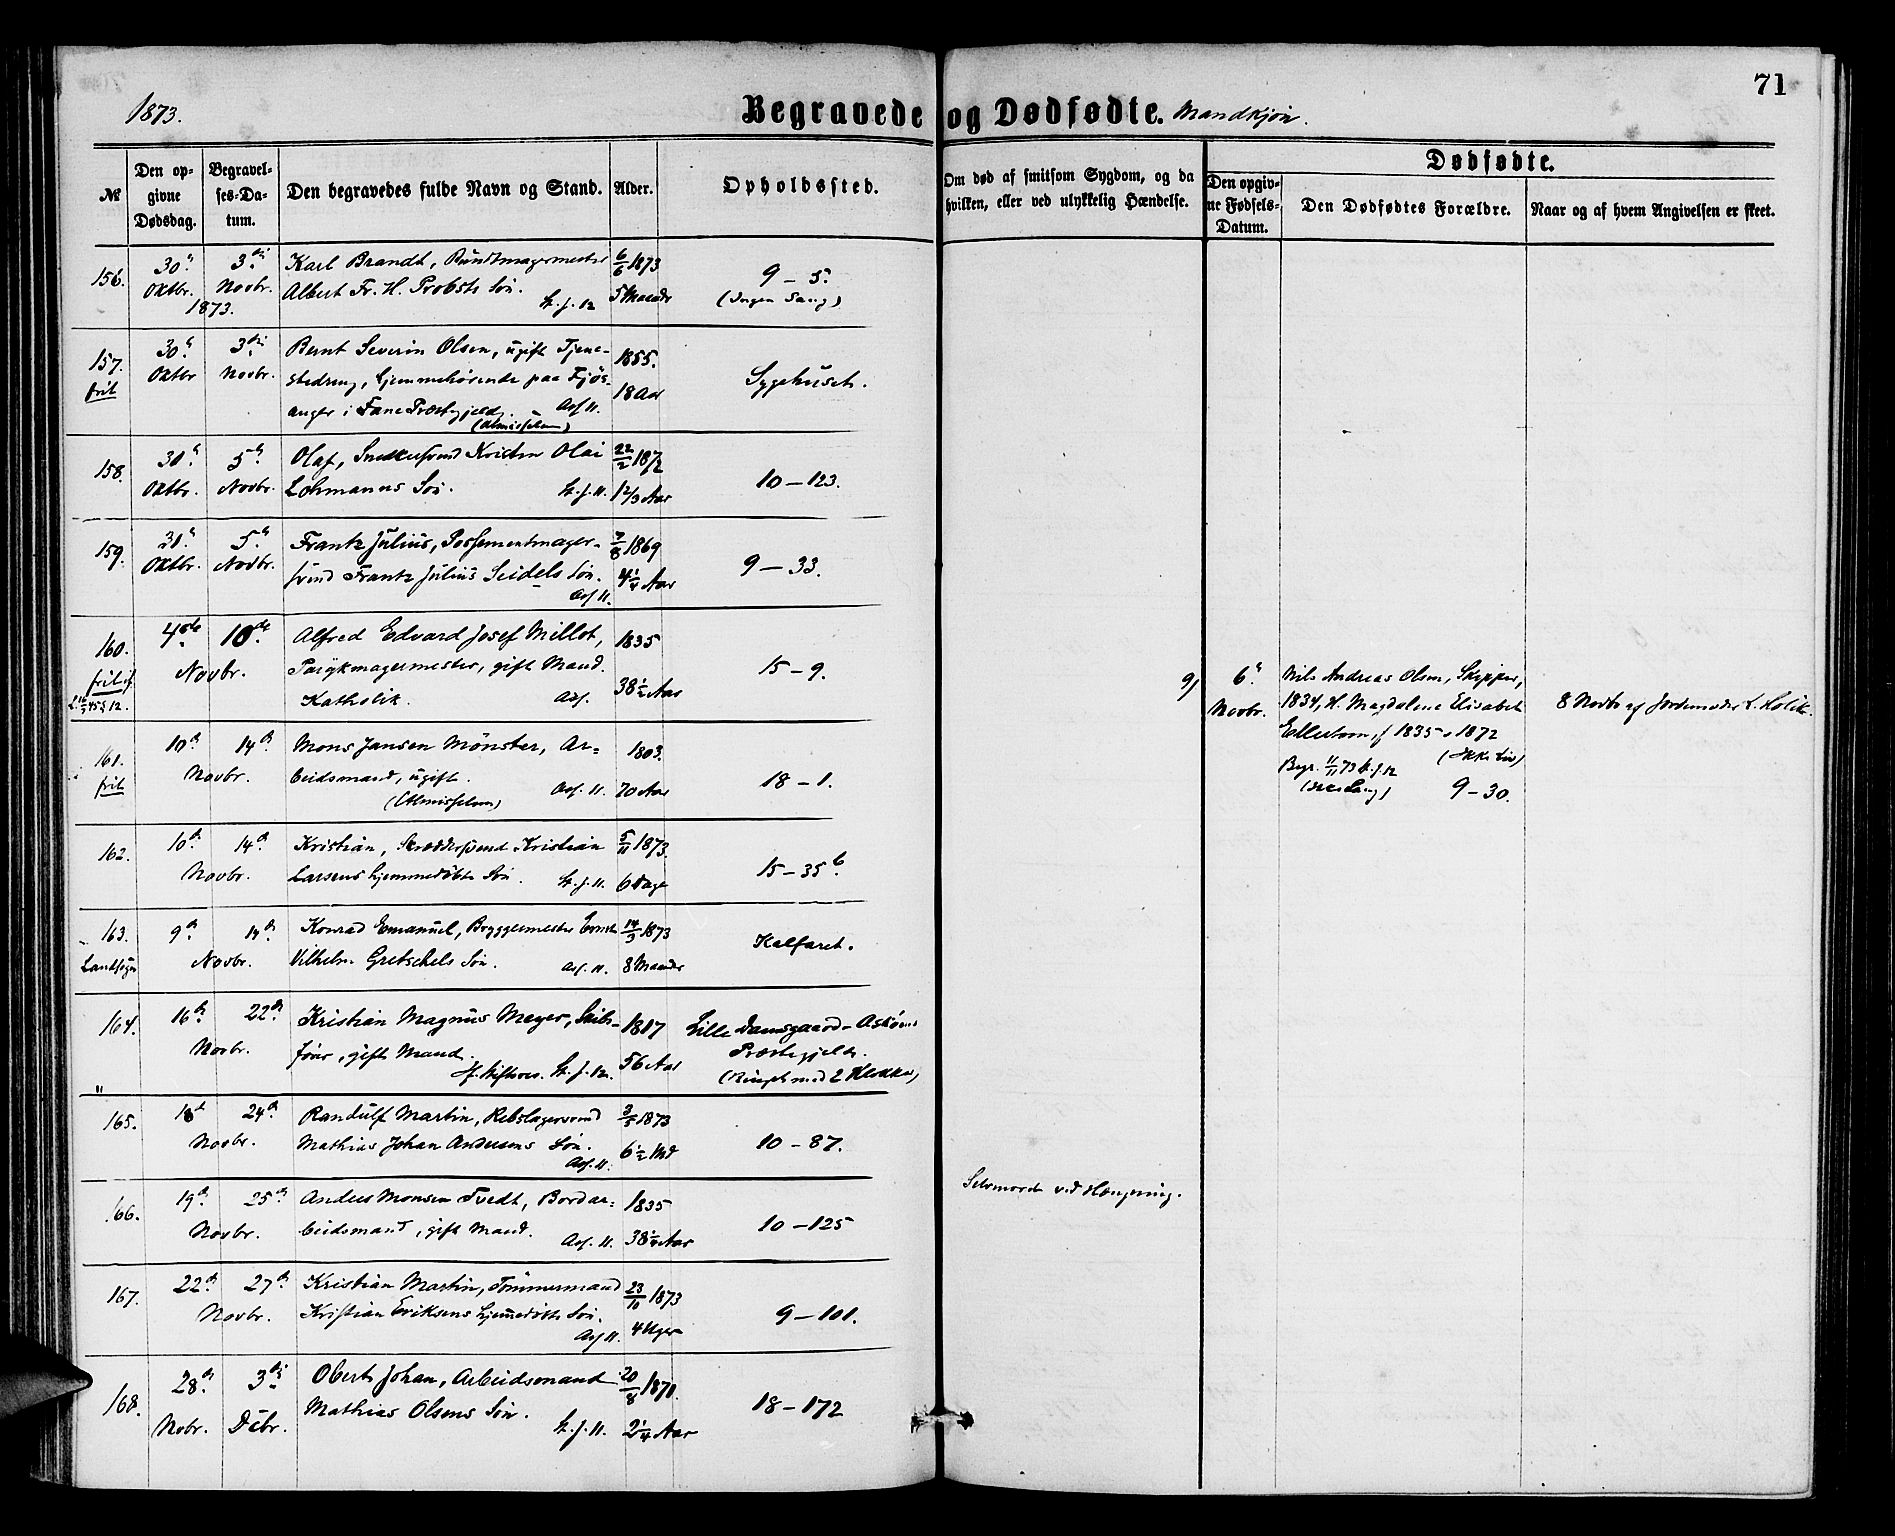 1873.
Begravede og Dødfødte. Mandkjøn.
71
№
Den opgivne Dødsdag.
Begravelses-Datum.
Den begravedes fulde Navn og Stand.
Alder.
Opholdssted.
Om død af smitsom Sygdom, og da hvilken, eller ved ulykkelig Hændelse.
Dødfødte.
Den opgivne Fødsels-Datum.
Den Dødfødtes Forældre.
Naar og af hvem Angivelsen er skeet.
156. 30 3die Karl Brandt, Bundtmagermester 6/6 1873 9 – 5.
Oktbr. Novbr. Albert Fr. H. Probsts Søn. 5 Maander (Ingen Sang)
1873. St. J. 12
157. 30 3die Bernt Severin Olsen, ugift Tjene- 1855.
frit Oktbr Novbr. stedreng, hjemmehørende paa Fjøs- 18 Aar Sygehuset.
anger i Fane Præstegjeld. Asf 11.
(Almisselem)
158. 30 5 Olaf, Snedkersvend Kristen Olai 22/2 1872
Oktbr. Novbr. Lohmanns Søn. St. J. 11. 1 2/3 Aar 10 – 123.
159. 31 5 Frantz Julius, Possementmager- 7/8 1869
Oktbr. Novbr. svend Frantz Julius Seidels Søn. 4 1/4 Aar 9 – 33.
Asf 11.
160. 4de 10de Alfred Edvard Josef Millot, 1835
frit Novbr. Parykmagermester, gift Mand. 15 – 9.
Katholik. Asf. 38 1/2 Aar
161. 10de 14de Mons Jansen Mønster, Ar- 1803.
frit Novbr. beidsmand, ugift. Asf. 11. 70 Aar 18 – 1.
(Almisselem)
162. 10de 14de Kristian, Skræddersvend Kristian 5/11 1873.
Novbr. Larsens hjemmedøbte Søn. St. J. 11. 6 Dage 15 – 35 b.
163. 9de 14de Konrad Emanuel, Bryggermester Ernst 14/3 1873
Landsogn Novbr. Vilhelm Gretschels Søn. Asf. 11. 8 Maander Kalfaret.
164. 16de 22de Kristian Magnus Meyer, Skibs- 1817 Lille Damsgaard – Askøens
Novbr. fører, gift Mand. 56 Aar Præstegjeld.
St. J. 12. (Ringet med 2 Klokker)
165. 18de 24de Randulf Martin, Rebslagersvend 3/5 1873
Novbr. Mathias Johan Andersens Søn. 6 1/2 Md 10 – 87.
Asf. 11.
166. 19de 25de Anders Monsen Tvedt, Bordar- 1835 Selvmord ved Hængning.
Novbr. beidsmand, gift Mand. Asf. 11. 38 1/4 Aar 10 – 125
167. 22de 27de Kristian Martin, Tømmermand 23/10 1873
Novbr. Kristian Eriksens hjemmedøbte Søn. 4 Uger 9 – 101.
Asf 11.
168. 28de 3die Obert Johan, Arbeidsmand 20/8 1871.
Nobr. Debr. Mathias Olsens Søn. St. J. 11. 2 1/4 Aar 18 – 172
9, 6 Nils Andreas Olsen, Skipper,
Novbr. 1834, H. Magdalene Elisabeth 8 Novbr af Jordemoder
Ellertsen, f 1835 1872
(Ikke Liv)
Begr. 11/11 73 St. J. 12
9 – 30.